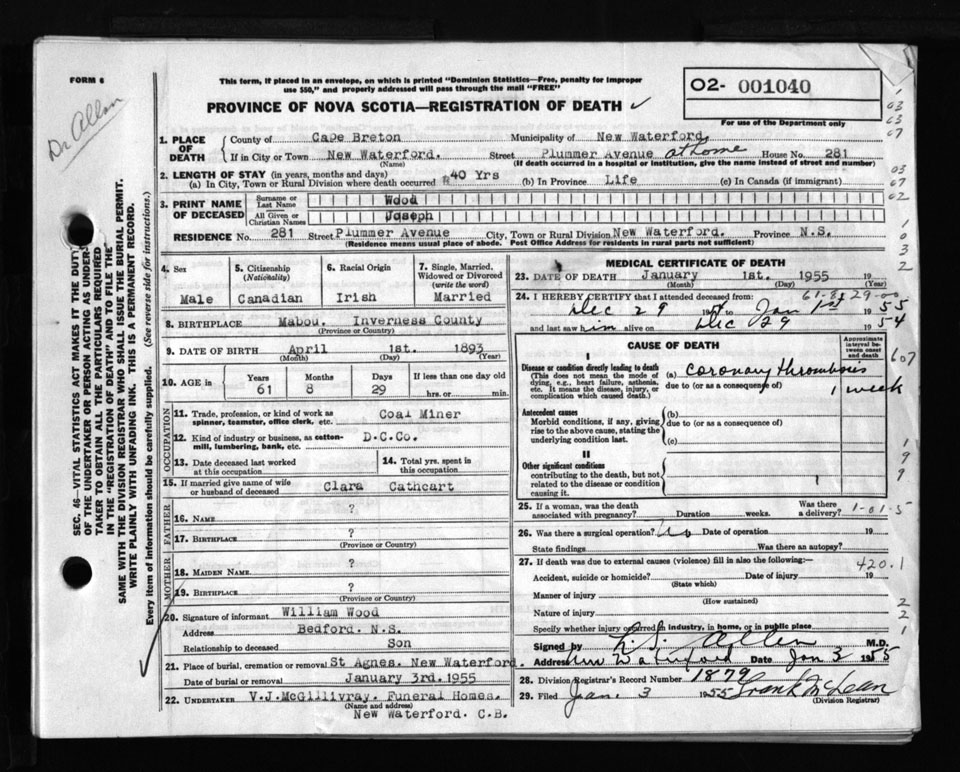 FORM 6
Dr Allen
This form, if placed in an envelope, on which is printed "Dominion Statistics—Free, penalty for improper
use $50," and properly addressed will pass through the mail "FREE"
O2- 001040
For use of the Department only
PROVINCE OF NOVA SCOTIA—REGISTRATION OF DEATH
SEC. 46—VITAL STATISTICS ACT MAKES IT THE DUTY
OF THE UNDERTAKER OR PERSON ACTING AS UNDER-
TAKER TO OBTAIN ALL THE PARTICULARS REQUIRED
IN THE "REGISTRATION OF DEATH" AND TO FILE THE
SAME WITH THE DIVISION REGISTRAR WHO SHALL ISSUE THE BURIAL PERMIT.
WRITE PLAINLY WITH UNFADING INK. THIS IS A PERMANENT RECORD.
Every item of information should be carefully supplied. (See reverse side for instructions.)
1. PLACE OF DEATH County of Cape Breton Municipality of New Waterford.
If in City or Town New Waterford. Street Plummer Avenue at home House No. 281
(Name) (If death occurred in a hospital or institution, give the name instead of street and number)
2. LENGTH OF STAY (in years, months and days)
(a) In City, Town or Rural Division where death occurred 40 Yrs (b) In Province Life (c) In Canada (if immigrant)
3. PRINT NAME OF DECEASED Surname or Last Name Wood
All Given or Christian Names Joseph
RESIDENCE No. 281 Street Plummer Avenue City, Town or Rural Division New Waterford. Province N.S.
(Residence means usual place of abode. Post Office Address for residents in rural parts not sufficient)
4. Sex Male
5. Citizenship (Nationality) Canadian
6. Racial Origin Irish
7. Single, Married, Widowed or Divorced (write the word) Married
8. BIRTHPLACE Mabou. Inverness County
(Province or Country)
9. DATE OF BIRTH April 1st. 1893
(Month) (Day) (Year)
10. AGE in Years 61 Months 8 Days 29 If less than one day old hrs. or min.
OCCUPATION
11. Trade, profession, or kind of work as spinner, teamster, office clerk, etc. Coal Miner
12. Kind of industry or business, as cotton-mill, lumbering, bank, etc. D.C.Co.
13. Date deceased last worked at this occupation
14. Total yrs. spent in this occupation
15. If married give name of wife or husband of deceased Clara Cathcart
FATHER
16. NAME ?
17. BIRTHPLACE ?
(Province or Country)
MOTHER
18. MAIDEN NAME ?
19. BIRTHPLACE ?
(Province or Country)
20. Signature of informant William Wood
Address Bedford. N.S.
Relationship to deceased Son
21. Place of burial, cremation or removal St Agnes. New Waterford.
Date of burial or removal January 3rd. 1955
22. UNDERTAKER V.J.McGillivray. Funeral Homes.
(Name and address)
New Waterford. C.B.
MEDICAL CERTIFICATE OF DEATH
23. DATE OF DEATH January 1st. 1955 19
(Month) (Day) (Year)
61-8-29-00
24. I HEREBY CERTIFY that I attended deceased from:
Dec 29 19 to Jan 1st 1955
and last saw him alive on Dec 29 1954
CAUSE OF DEATH
Approximate interval between onset and death
I
Disease or condition directly leading to death
(This does not mean the mode of dying, e.g., heart failure, asthenia, etc. It means the disease, injury, or complication which caused death.)
(a) coronary thrombosis
due to (or as a consequence of) 1 week
Antecedent causes
Morbid conditions, if any, giving rise to the above cause, stating the underlying condition last.
(b)
due to (or as a consequence of)
(c)
II
Other significant conditions
contributing to the death, but not related to the disease or condition causing it.
25. If a woman, was the death associated with pregnancy? Duration weeks. Was there a delivery?
1-01-5
26. Was there a surgical operation? No Date of operation 19
State findings Was there an autopsy?
27. If death was due to external causes (violence) fill in also the following:
420.1
Accident, suicide or homicide? Date of injury 19
(State which)
Manner of injury
(How sustained)
Nature of injury
Specify whether injury occurred in industry, in home, or in public place
Signed by L. S. Allen M.D.
Address New Waterford Date Jan 3 1955
28. Division Registrar's Record Number 1879
29. Filed Jan. 3 1955 Frank McLean
(Division Registrar)
03
03
07
03
07
02
1
0
3
2
607
1
9
9
2
2
1